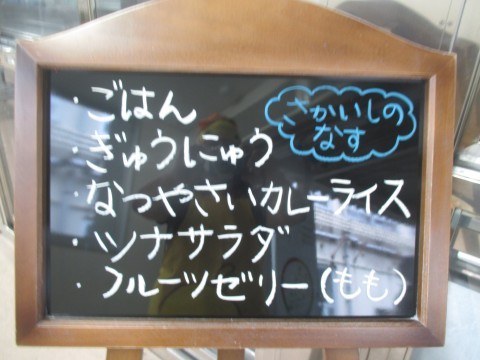 ・ごはん
・ぎゅうにゅう
・なつやさいカレーライス
・ツナサラダ
・フルーツゼリー(もも)
さかいしの
なす